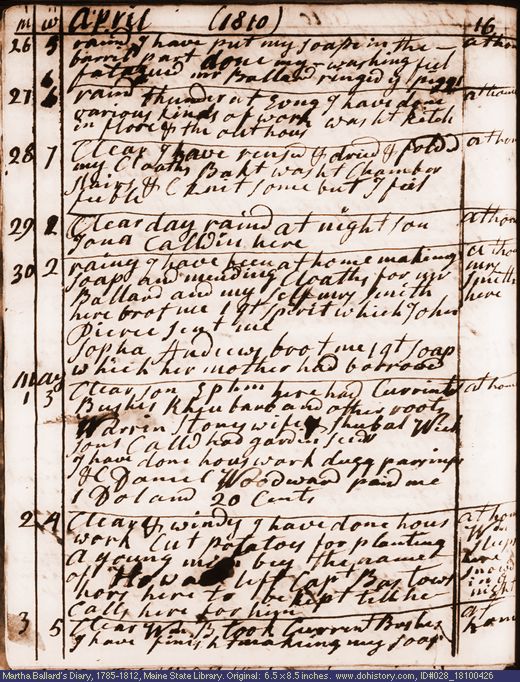 m w April (1810) 16
26 5 rainy I have put my soape in the athom
barril & part done my washing feel
fatagued mr Ballard ringed ye piggs
27 6 raind thunder at Evng I have done athome
various kinds of work washt kitch
in floor & the outhous
28 7 Clear I have rensd & dried & folded athom
my Cloaths Bakt washt Chamber
stairs &C knit some but I feel
feeble
29 1 Clear day raind at night son athom
Jona Calld in here
30 2 rainy I have been at home making at hom
soap and mending Cloaths for mr mrs
Ballard and my self mrs Smith Smith
here brot me 1 qt spirit which John here
Pierce sent me
Sopha Andrews brot me 1 qt soap
which her mother had borowd
May
1 3 Clear son Ephm here had Currant athome
Bushes Rhubarb and other roots
Warrin Stons wife & Shubal
sons Calld had garden seeds
I have done hous work dugg parsnips
&C Daniel Woodward paid me
1 Dol and 20 Cents
2 4 Clear & windy I have done hous athom
work Cut potatoes for planting Wm
a young man buy the name sleep
of Howard left Cap Bastows here
hors here to be kept till he snowd in ye
Calls here for him night
3 5 Clear Wm B took Current Bushes at
I have finisht making my soap home
Martha Ballard's Diary, 1785-1812, Maine State Library. Original: 6.5 x 8.5 inches. www.dohistory.com, ID#028_18100426